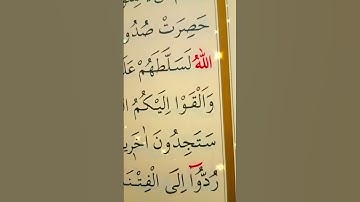 حَصِرَتْ صُدُو
اللّٰهُ لَسَلَّطَهُمْ عَلَ
وَاَلْقَوْا اِلَيْكُمُ ال
سَتَجِدُونَ اٰخَرٖي
رُدُّٓوا اِلَى الْفِتْنَ